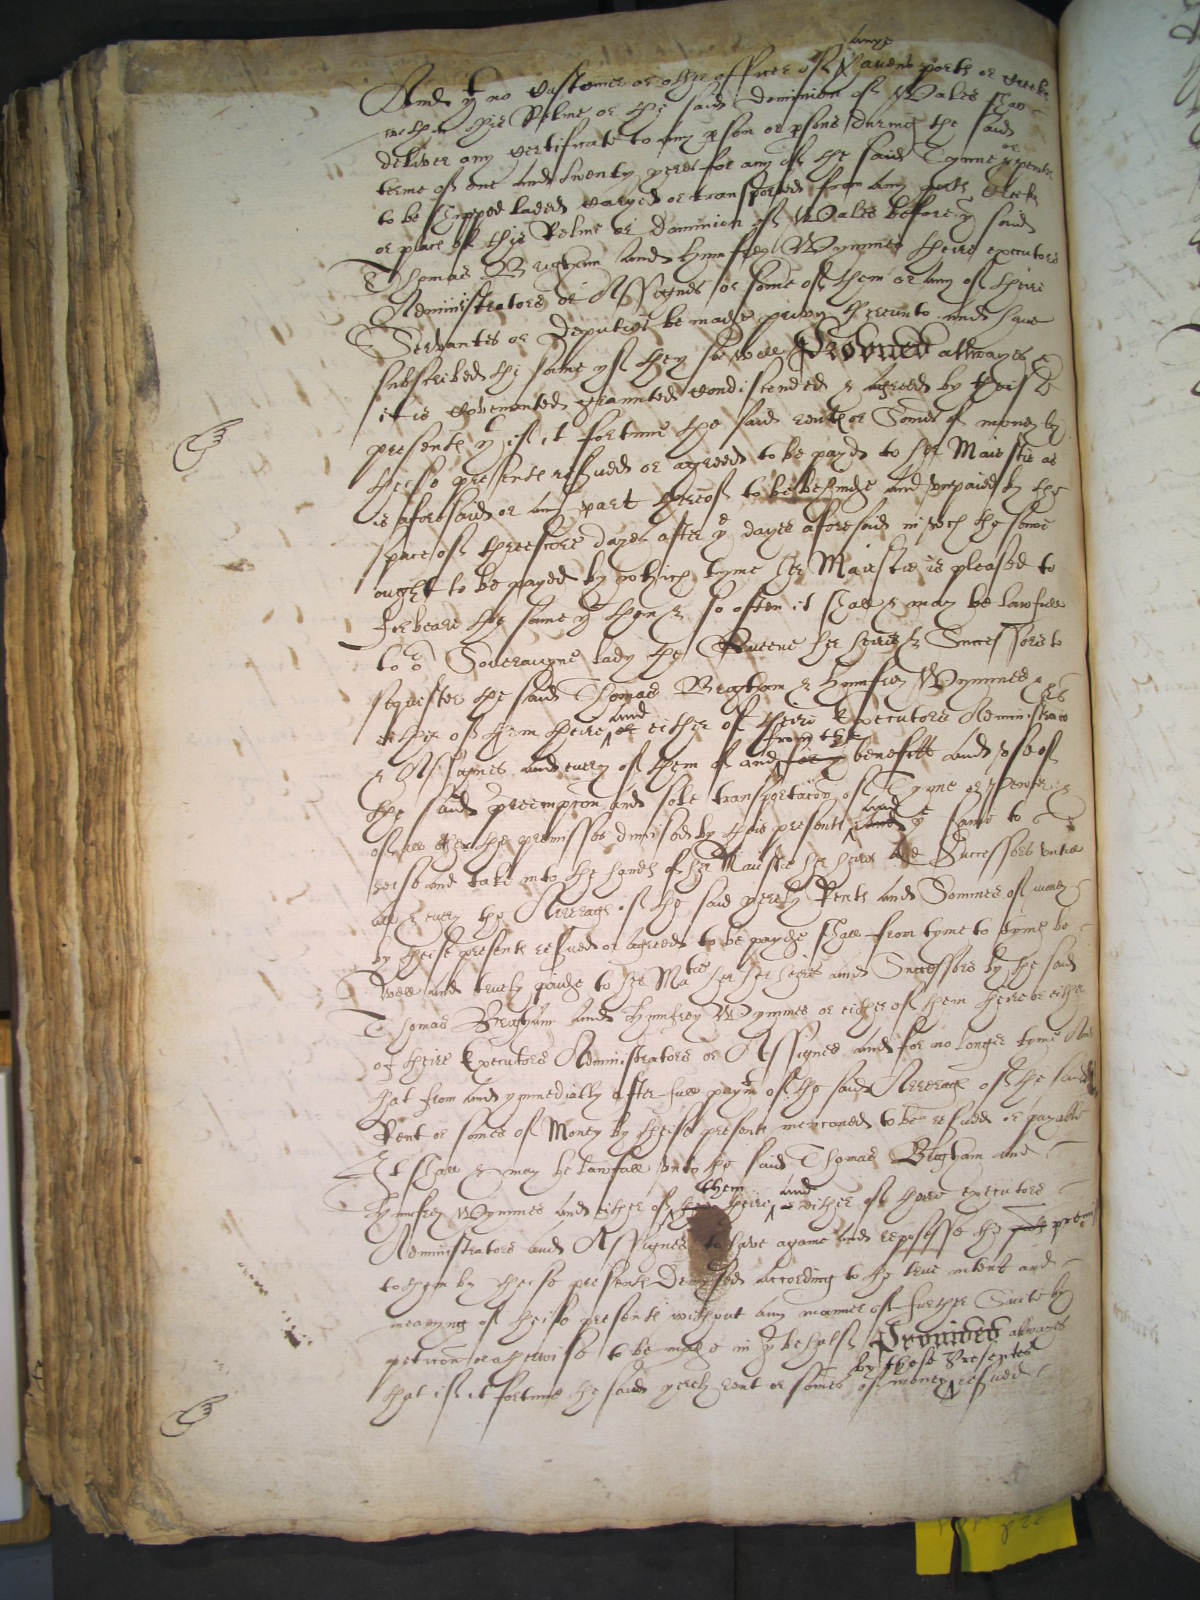 anye
And yt no Customer or other officer of havens ports or creeks
within this Relme or the said dominion of Wales shall
deliver any Certificate to any pson or psons during the said
terme of one and twenty yeres for any of the said Tynne or pewter
to be shipped laded caryed or transported from any porte Creek
or place of this Relme or dominion of Wales before ye said
Thomas Brigham and Humfrey Wymmes theire executors
Administrators or Assignes or some of them or any of theire
Servantes or deputies be made privy thereunto and have
subscribed the same yf they so will Provided allwayes &
it is Covenanted graunted Condiscended & agreed by theise
presente yt if it fortune the said rente or Somes of money by
theise presente resrued or agreed to be payd to her Maiestie as
is aforesaid or any part thereof to be behinde and unpaied by the
space of threescore dayes after ye dayes aforesaid in wch the same
ought to be payed by which tyme her Maiestie is pleased to
forbeare the same yt then & so often it shall & may be lawfull
to or Soveraigne lady the Queene her heires & Successors to
sequester the said Thomas Brigham & Humfrey Wymmes &
either of them theire and or either of theire Executors Administrators
& Assignes and every of them of and from the for ye benefitt and use of
the said preempcon and sole transportacon of Tynne or pewter &
of all other the premisses dimised by this presente and ye same to
seise and take into the hands of her Maiestie her heires and Successors untill
all & every the Arrerage of the said yerely Rente and Sommes of money
by theise presente resrued or agreed to be payde shall from tyme to tyme be
well and truely paide to her Matie her heires and Successors by the said
Thomas Brigham and Humfrey Wymmes or either of them theire or either
of theire Executors Administrators or Assignes and for no longer tyme And
that from and ymmediatly after full paymt of the said Arrerage of the said
Rent or somes of Money by theise presente mencioned to be resrued or payable
It shall & may be lawfull unto the said Thomas Brigham and
Humfrey Wymmes and either of them theire and either of theire executors
Administrators and Assignes to have againe and reposesse the premi
to them by theise presente Demysed according to the true intent and
meanyng of theise presente without any manner of further Suite by
peticon or otherwise to be made in yt behalf Provided allwayes
by these Presentes
that if it fortune the said yerely rent or somes of money resrued